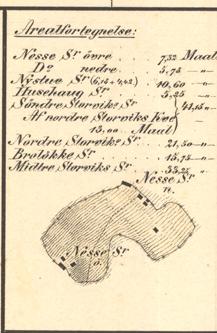 Arealfortegnelse:
Nesse Sr øvre . 7,32 Maal
Do nedre . 5,75 —„—
Nystue Sr (6,18+4,42) . 10,60 —„—
Husehaug Sr . 5,25 —„—
Søndre Storviks Sr } 41,15 —„—
Af nordre Storviks Eve
15,00 Maal
Nordre Storviks Sr . 21,50 —„—
Brolökke Sr . 15,75 —„—
Midtre Storviks Sr . 33,25 —„—
Nesse Sr
n.
Nesse Sr
ö.